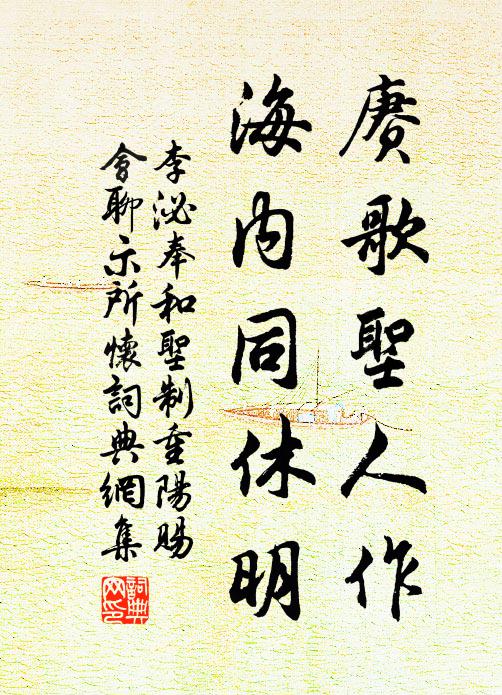 赓歌聖人作
海内同休明
李泌奉和聖制重陽賜
會聊示所懷詞典網集
詞典
网印